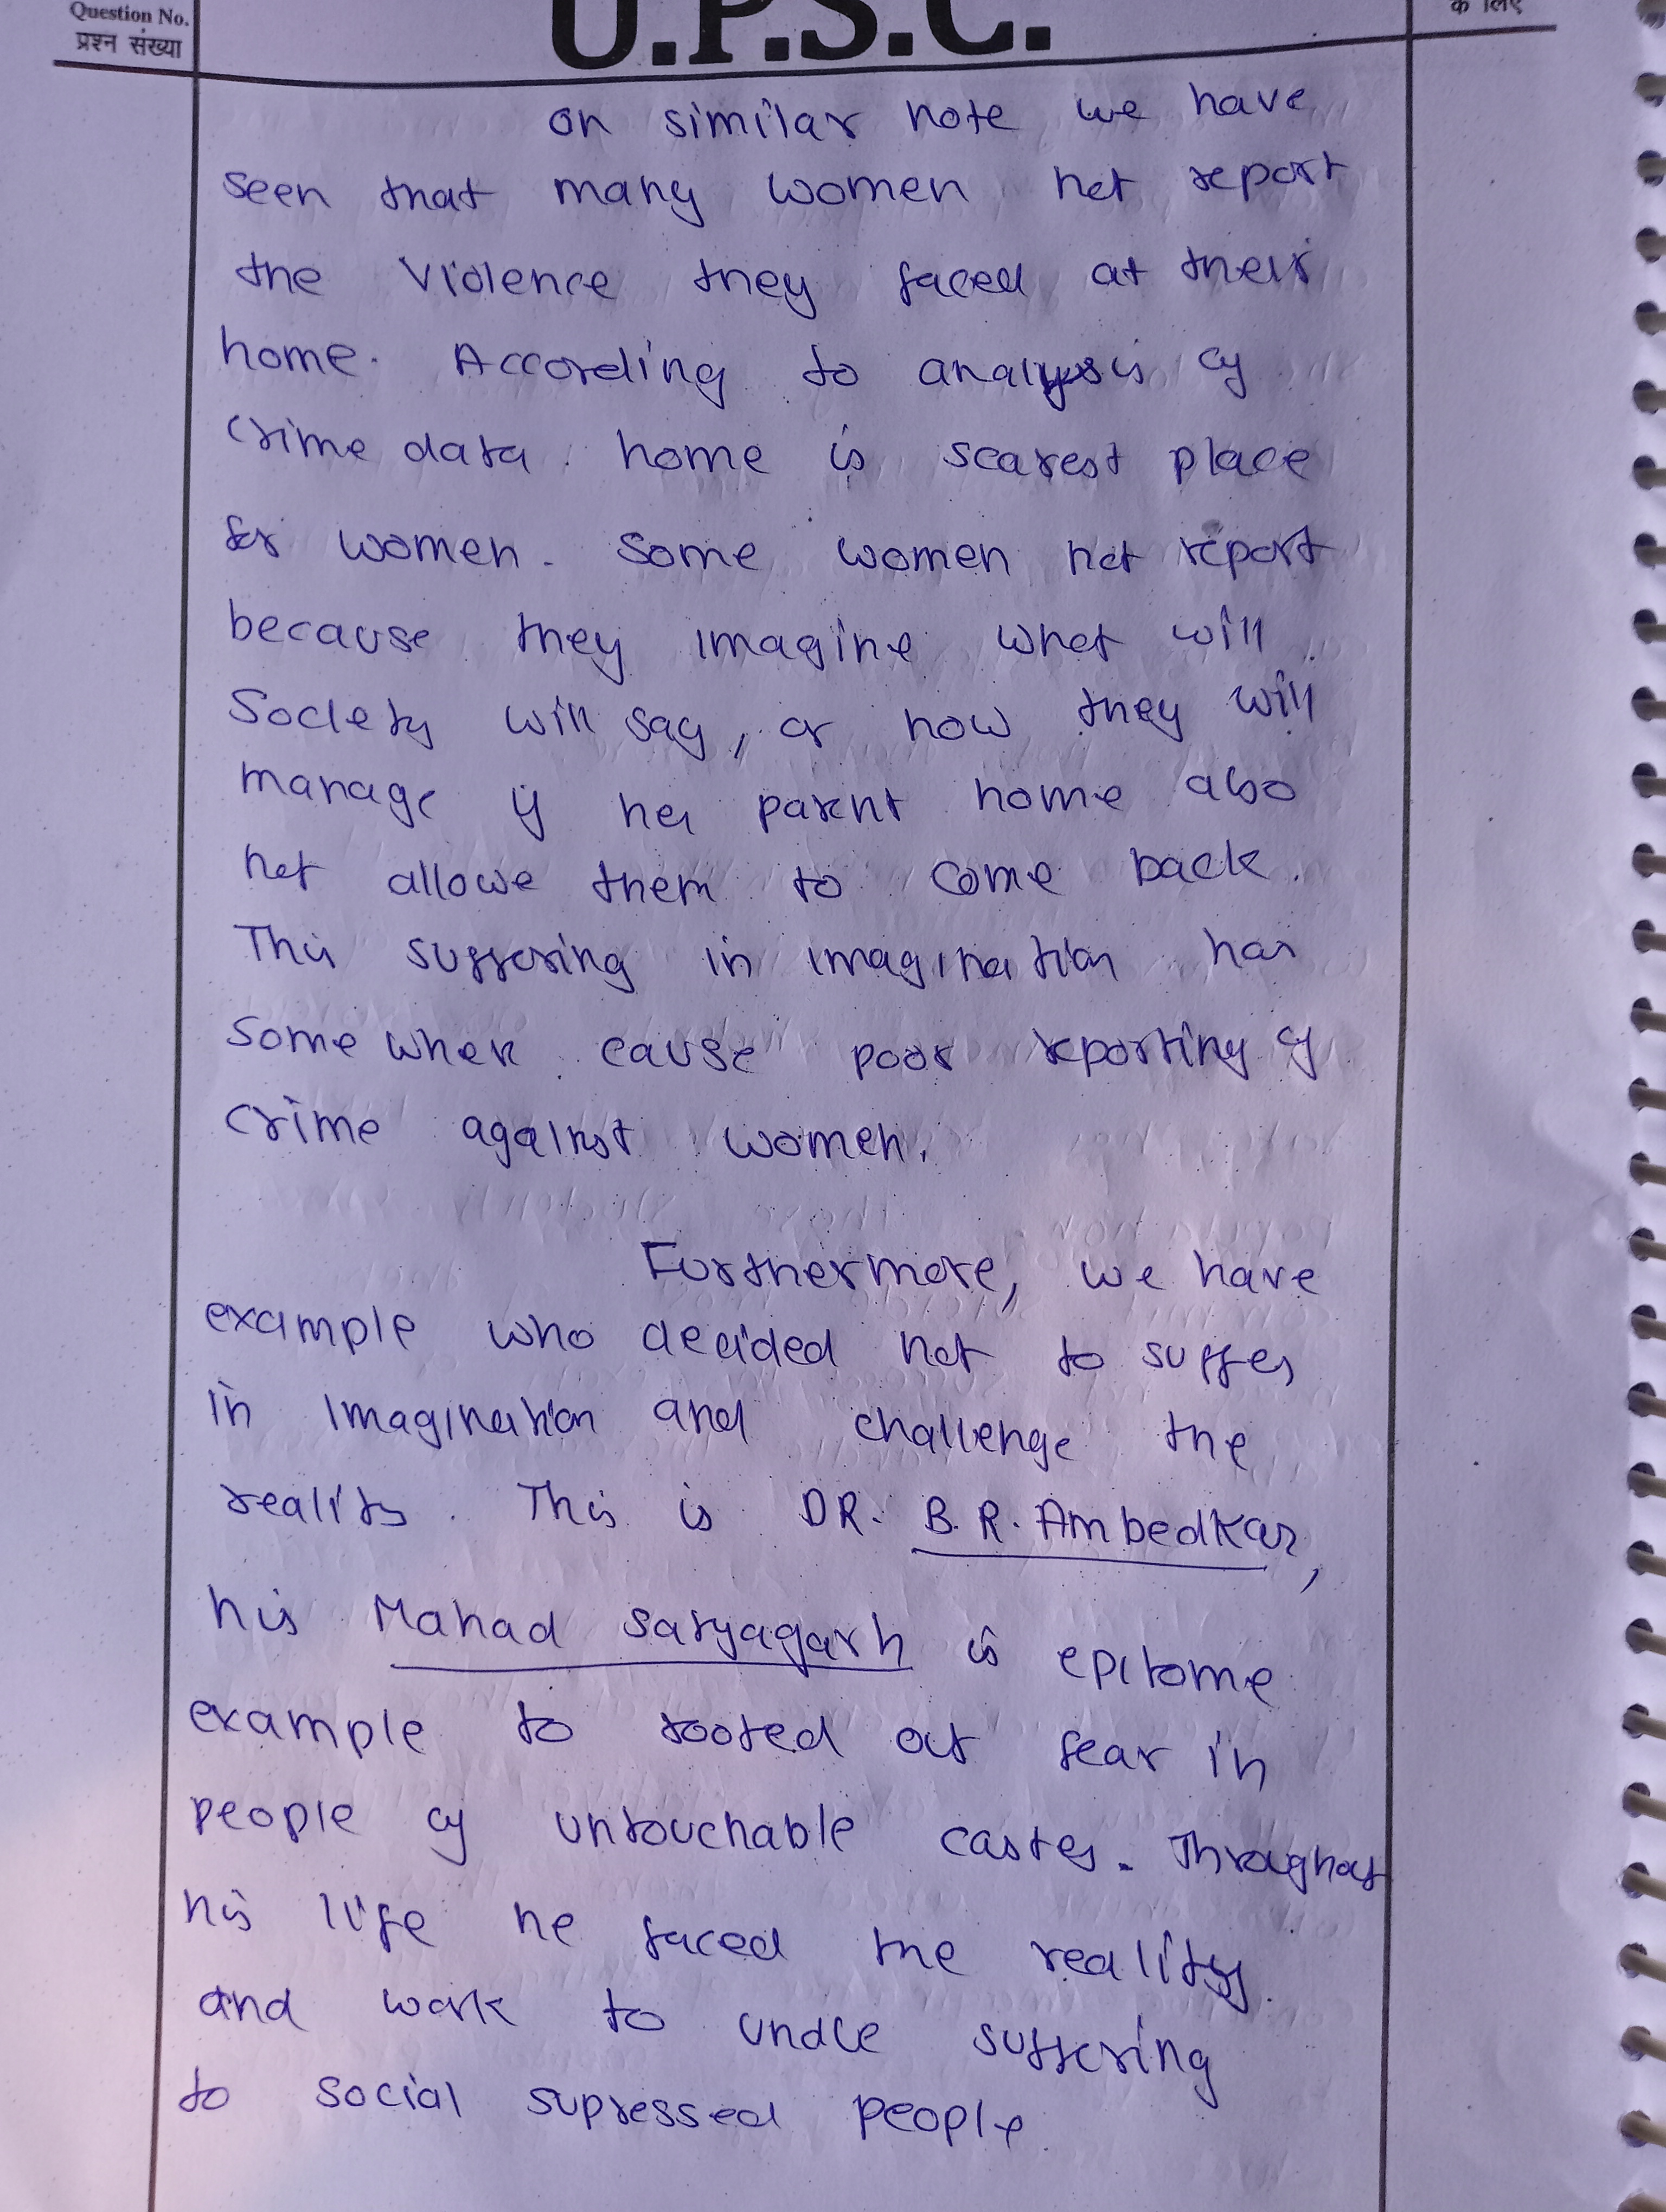 Question No.
प्रश्न संख्या
U.P.S.C.
के लिए
on similar note we have
seen that many women not report
the violence they faced at their
home. According to analysis of
crime data. home is scarest place
for women. Some women not report
because they imagine what will
Society will say, or how they will
manage if her parent home also
not allowe them to come back.
This suffering in imagination has
some where cause poor reporting of
crime against women.
Furthermore, we have
example who decided not to suffer
in imagination and challenge the
reality. This is DR. B.R. Ambedkar,
his Mahad satyagarh is epitome
example to rooted out fear in
people of untouchable castes. Throughout
his life he faced the reality.
and work to undue suffering
to social supressed people.